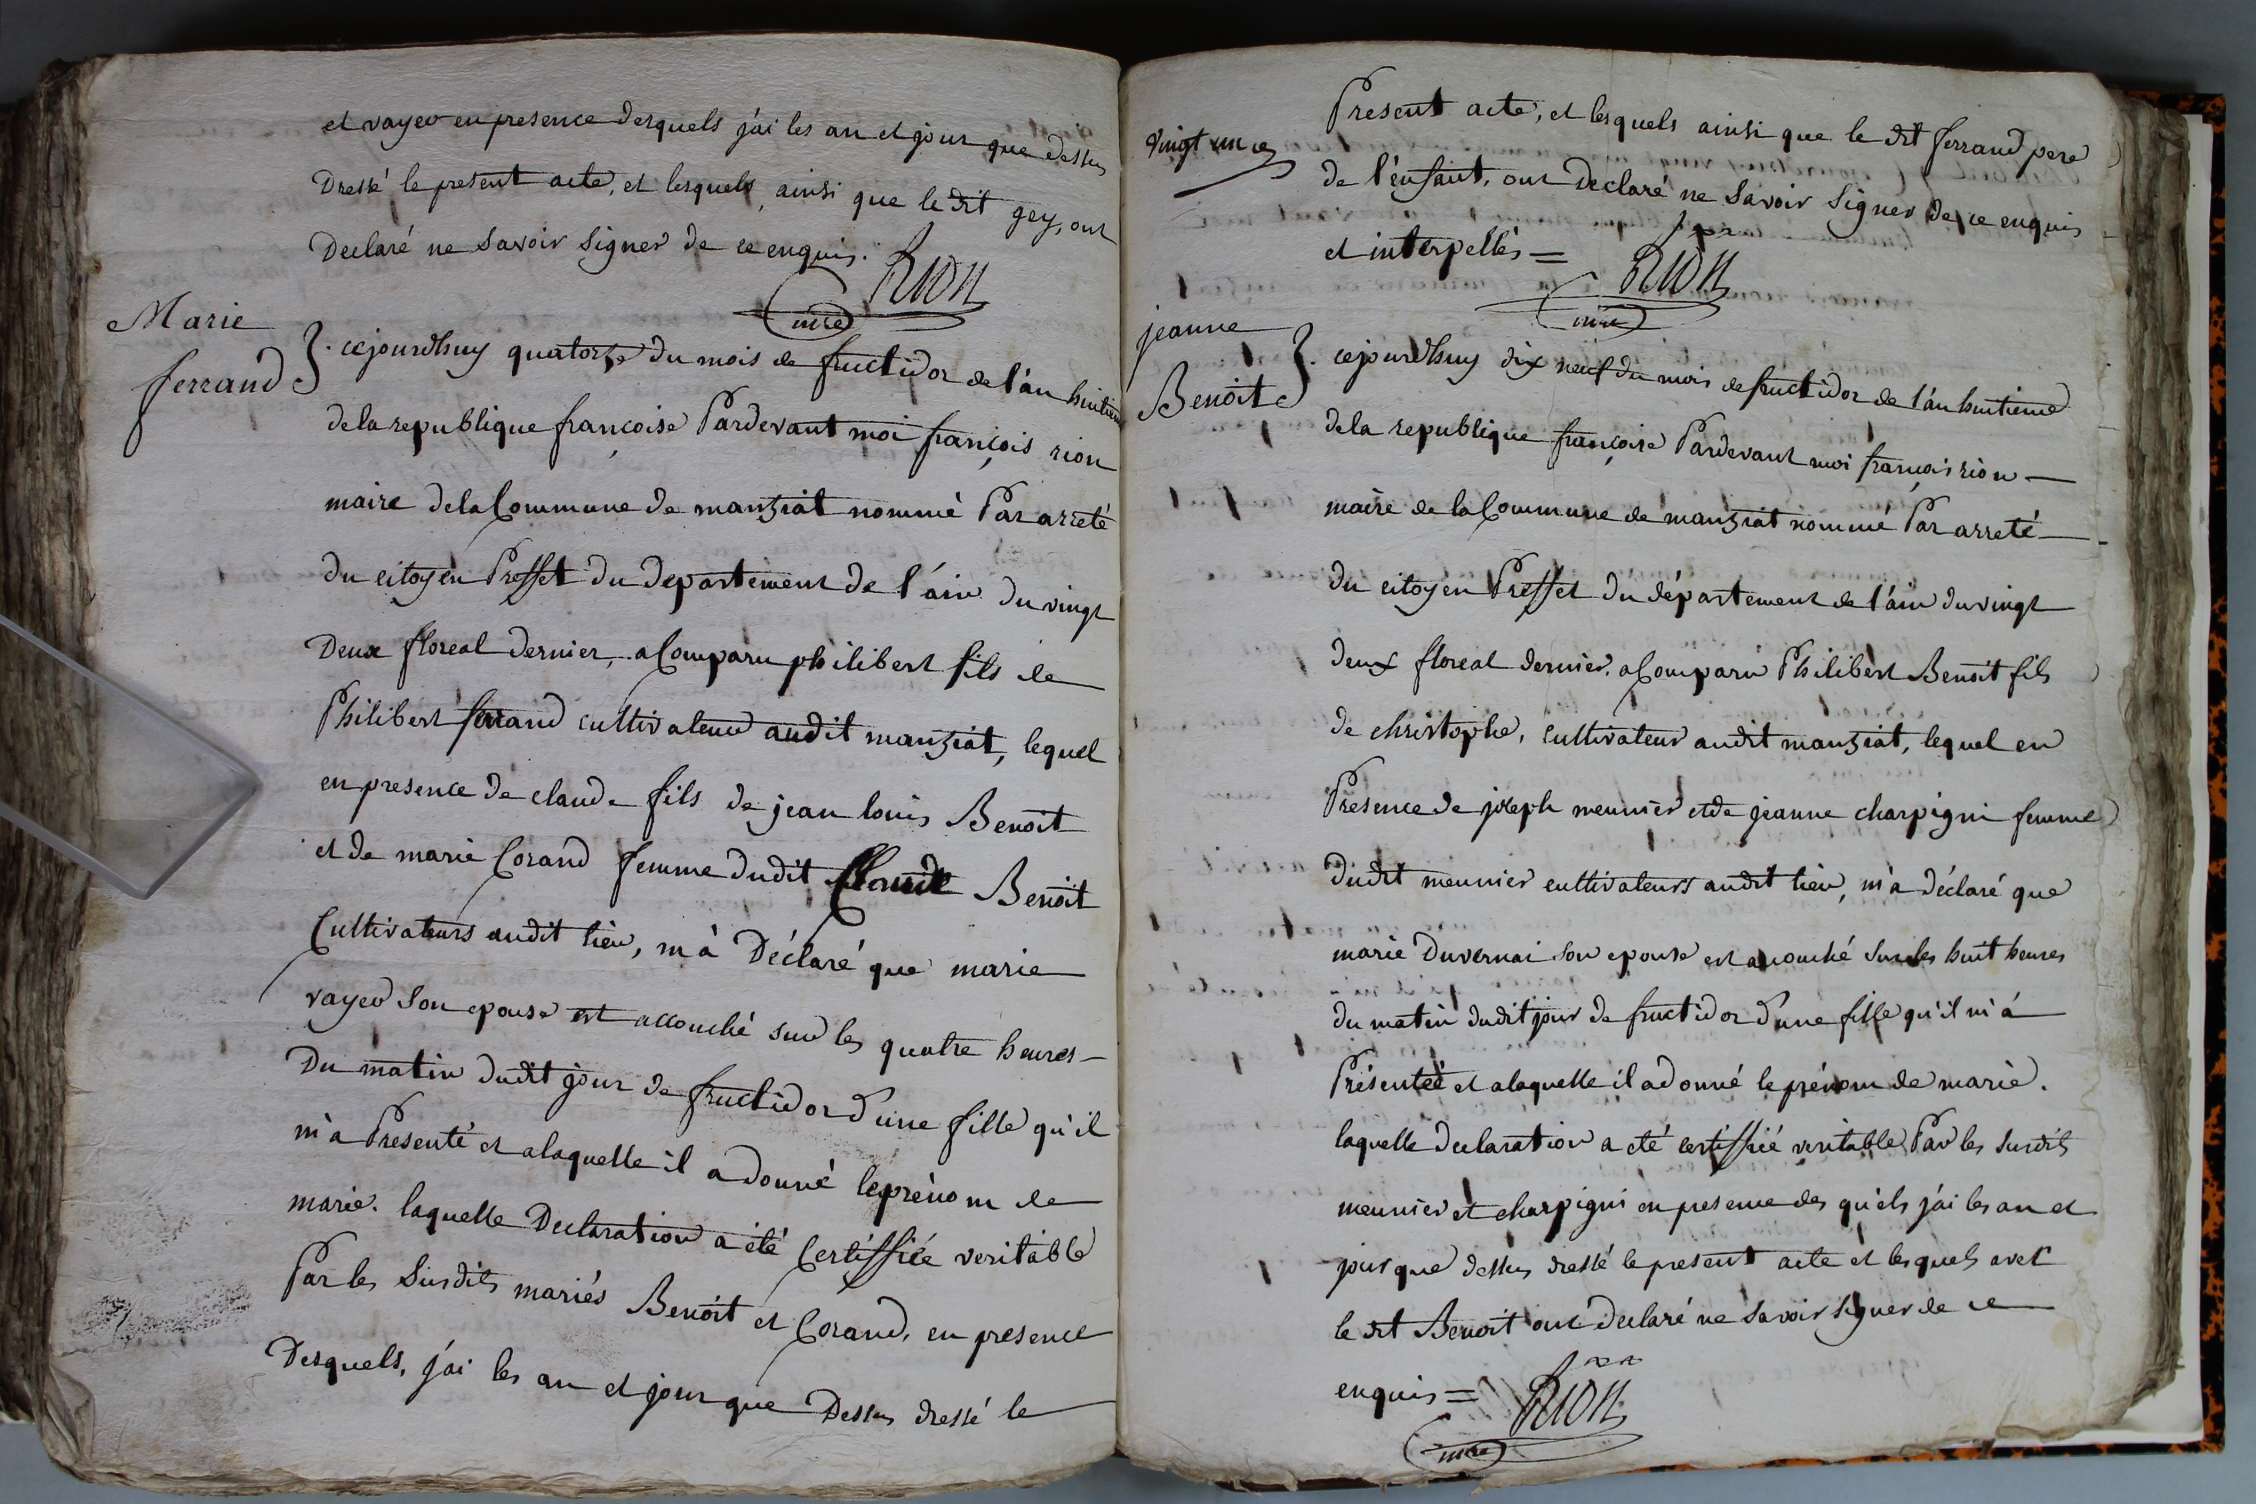 et vayer en presence desquels j'ai les an et jour que dessus
Dressé le present acte, et lesquels, ainsi que le dit gey, ont
Declaré ne savoir signer de ce enquis.
RION
mre
Marie
ferrand
cejourdhuy quatorze du mois de fructidor de l'an huitieme
de la republique françoise Pardevant moi françois rion
maire de la Commune de manziat nommé Par arreté
du citoyen Preffet du departement de l'ain du vingt
Deux floreal dernier, a Comparu philibert fils de
Philibert ferrand cultivateur audit manziat, lequel
en presence de claude fils de jean louis Benoit
et de marie Corand femme dudit Claude Benoit
Cultivateurs audit lieu, m'a Déclaré que marie
vayer son epouse est accouché sur les quatre heures
Du matin dudit jour de fructidor d'une fille qu'il
m'a Presenté et alaquelle il a donné le prénom de
marie. laquelle Declaration a été Certiffiée veritable
Par les Susdits mariés Benoit et Corand, en presence
Desquels, j'ai les an et jour que Dessus dressé le
vingt un
Present acte, et lesquels ainsi que le dit ferrand pere
de l'enfant, ont Declaré ne Savoir Signer de ce enquis
et interpellés =
RION
mre
jeanne
Benoit
cejourdhuy dix neuf du mois de fructidor de l'an huitieme
de la republique françoise Pardevant moi françois rion
maire de la Commune de manziat nommé Par arreté
du citoyen Preffet du département de l'ain du vingt
deux floreal dernier. a Comparu Philibert Benoit fils
de christophe, cultivateur audit manziat, lequel en
Presence de joseph meunier et de jeanne charpigni femme
dudit meunier cultivateurs audit lieu, m'a déclaré que
marie Duvernai son epouse est accouché sur les huit heures
du matin dudit jour de fructidor d'une fille qu'il m'a
Présentée et alaquelle il a donné le prénom de marie.
laquelle declaration a été certiffiée veritable Par les susdits
meunier et charpigni en presence des quels j'ai les an et
jour que dessus dressé le present acte et lesquels avec
le dit Benoit ont declaré ne savoir signer de ce
enquis =
RION
mre